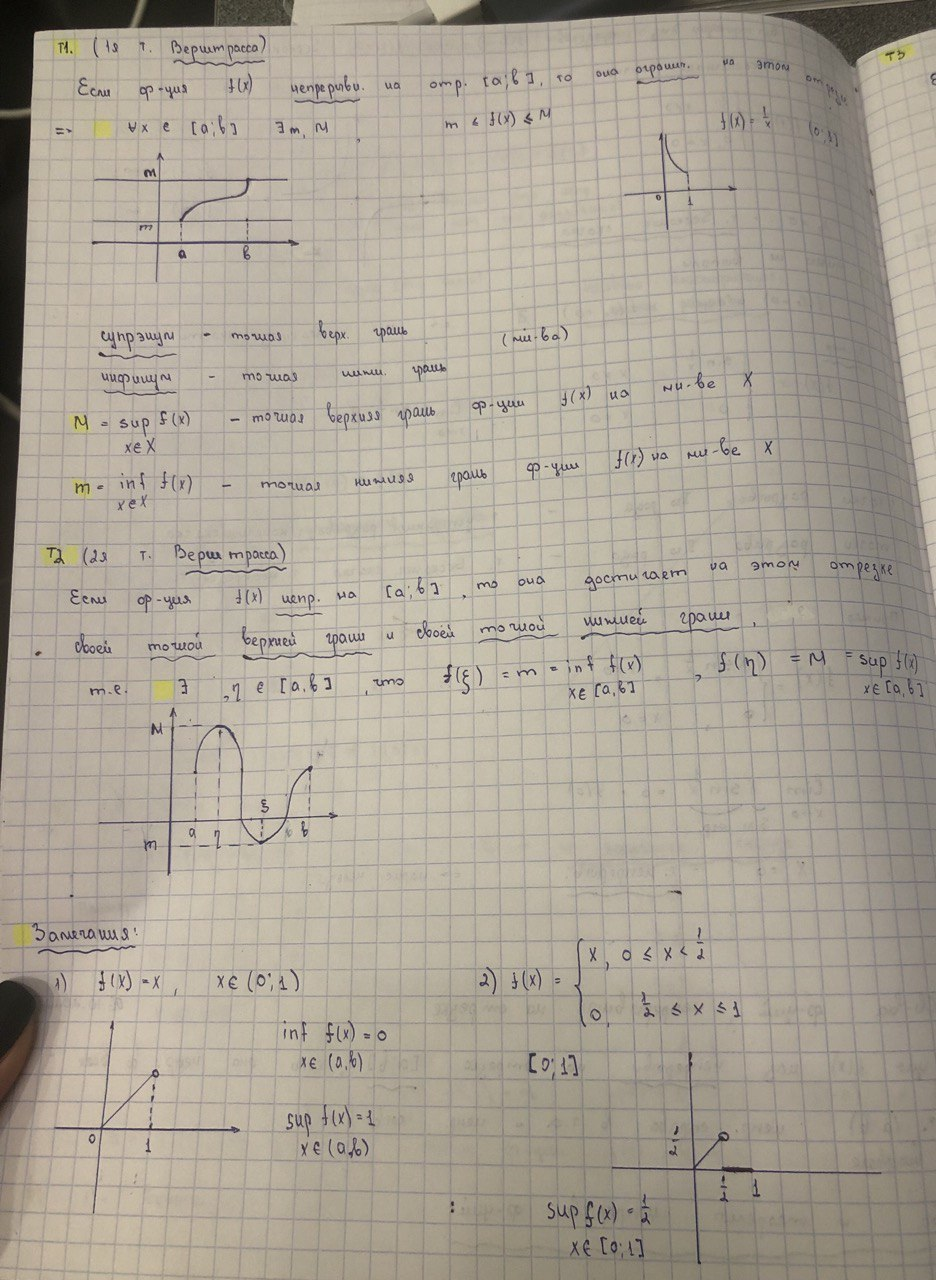 T1. (1я т. Верштрасса)
Если ф-ция f(x) непрерывн. на отр. [a;b], то она огранич. на этом отрезке
=> ∀x ∈ [a;b] ∃m, M, m ≤ f(x) ≤ M f(x) = 1/x (0;1]
m
m
a b
0 1
супрэнум - точная верх. грань (мн-ва)
инфинум - точная нижн. грань
M = sup f(x) - точная верхняя грань ф-ции f(x) на мн-ве X
x∈X
m = inf f(x) - точная нижняя грань ф-ции f(x) на мн-ве X
x∈X
T2 (2я т. Верштрасса)
Если ф-ция f(x) непр. на [a;b], то она достигает на этом отрезке
своей точной верхней грани и своей точной нижней грани,
т.е. ∃ , η ∈ [a,b], что f(ξ) = m = inf f(x), f(η) = M = sup f(x)
x∈[a,b] x∈[a,b]
M
ξ
a η b
m
Замечания:
1) f(x) = x, x∈(0;1)
inf f(x) = 0
x∈(a,b)
0 1
sup f(x) = 1
x∈(a,b)
2) f(x) = { x, 0 ≤ x < 1/2
0, 1/2 ≤ x ≤ 1
[0;1]
1/2
1/2 1
sup f(x) = 1/2
x∈[0;1]
T3